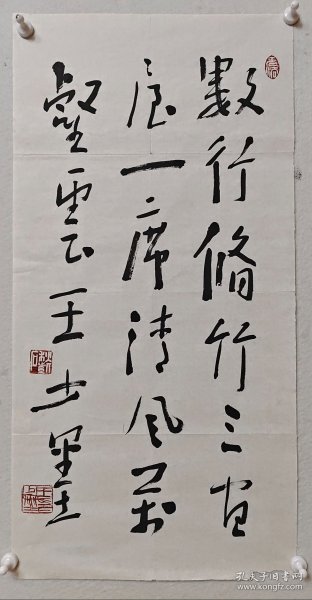 數行脩竹三間
屋一席清風萬
壑雲王士
孔夫子旧书网
www.kongfz.com